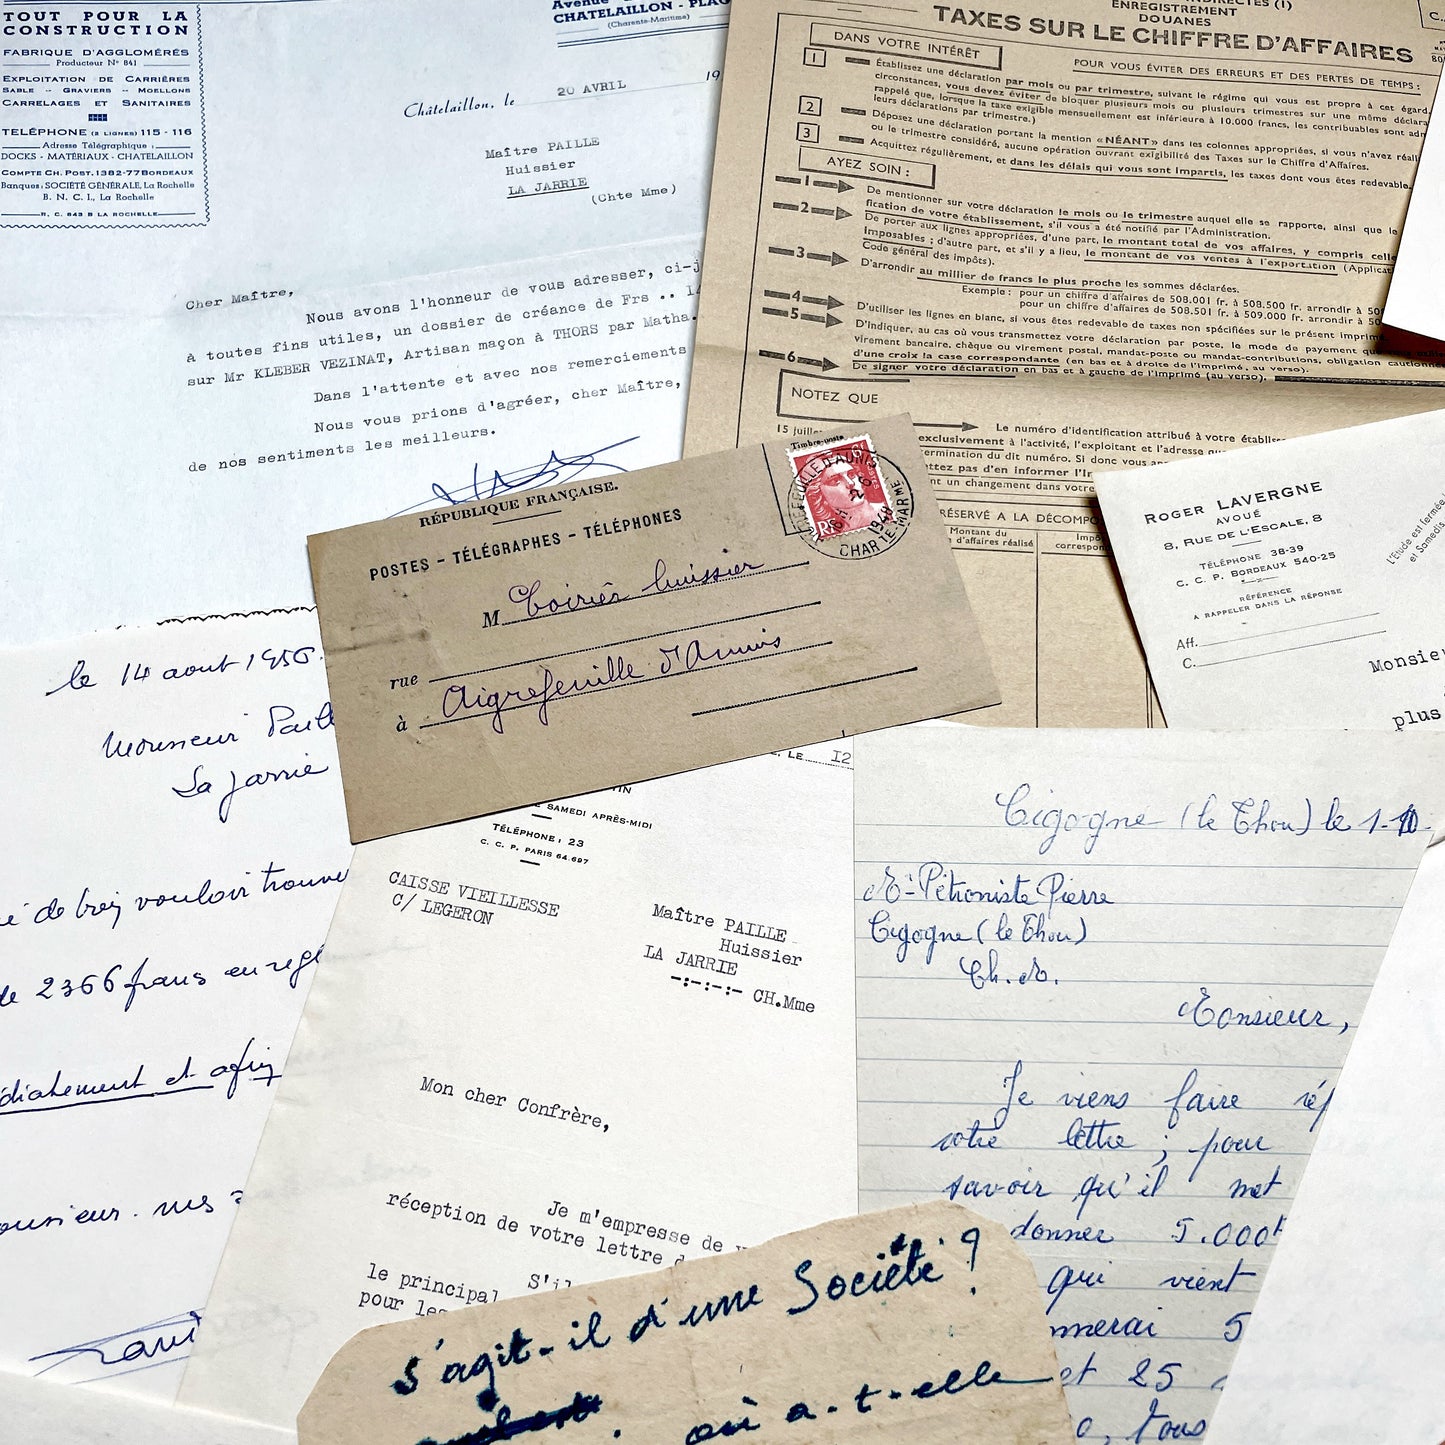 TOUT POUR LA
CONSTRUCTION
FABRIQUE D'AGGLOMÉRÉS
Producteur N° 841
EXPLOITATION DE CARRIÈRES
SABLE -- GRAVIERS -- MOELLONS
CARRELAGES ET SANITAIRES
TÉLÉPHONE (2 LIGNES) 115 - 116
Adresse Télégraphique :
DOCKS - MATÉRIAUX - CHATELAILLON
COMPTE CH. POST. 1382-77 BORDEAUX
Banques : SOCIÉTÉ GÉNÉRALE, La Rochelle
B. N. C. I., La Rochelle
R. C. 843 B LA ROCHELLE
Avenue
CHATELAILLON - PLAG
(Charente-Maritime)
Châtelaillon, le 20 AVRIL 19
Maître PAILLE
Huissier
LA JARRIE
(Chte Mme)
Cher Maître,
Nous avons l'honneur de vous adresser, ci-j
à toutes fins utiles, un dossier de créance de Frs ..
sur Mr KLEBER VEZINAT, Artisan maçon à THORS par Matha.
Dans l'attente et avec nos remerciements
Nous vous prions d'agréer, cher Maître,
de nos sentiments les meilleurs.
INDIRECTES (1)
ENREGISTREMENT
DOUANES
TAXES SUR LE CHIFFRE D'AFFAIRES
DANS VOTRE INTÉRÊT
POUR VOUS ÉVITER DES ERREURS ET DES PERTES DE TEMPS :
1 Établissez une déclaration par mois ou par trimestre, suivant le régime qui vous est propre à cet égard.
circonstances, vous devez éviter de bloquer plusieurs mois ou plusieurs trimestres sur une même déclara
rappelé que, lorsque la taxe exigible mensuellement est inférieure à 10.000 francs, les contribuables sont adm
leurs déclarations par trimestre.)
2 Déposez une déclaration portant la mention «NÉANT» dans les colonnes appropriées, si vous n'avez réali
ou le trimestre considéré, aucune opération ouvrant exigibilité des Taxes sur le Chiffre d'Affaires.
3 Acquittez régulièrement, et dans les délais qui vous sont impartis, les taxes dont vous êtes redevable.
AYEZ SOIN :
1 De mentionner sur votre déclaration le mois ou le trimestre auquel elle se rapporte, ainsi que le
fication de votre établissement, s'il vous a été notifié par l'Administration.
2 De porter aux lignes appropriées, d'une part, le montant total de vos affaires, y compris celle
Imposables ; d'autre part, et s'il y a lieu, le montant de vos ventes à l'exportation (Applicat
Code général des impôts).
3 D'arrondir au millier de francs le plus proche les sommes déclarées.
Exemple : pour un chiffre d'affaires de 508.001 fr. à 508.500 fr. arrondir à 50
pour un chiffre d'affaires de 508.501 fr. à 509.000 fr. arrondir à 50
4 D'utiliser les lignes en blanc, si vous êtes redevable de taxes non spécifiées sur le présent imprimé.
5 D'indiquer, au cas où vous transmettez votre déclaration par poste, le mode de payement que
virement bancaire, chèque ou virement postal, mandat-poste ou mandat-contributions, obligation cautionnée
d'une croix la case correspondante (en bas et à droite de l'imprimé, au verso).
6 De signer votre déclaration en bas et à gauche de l'imprimé (au verso).
NOTEZ QUE
15 juill
Le numéro d'identification attribué à votre établiss
exclusivement à l'activité, l'exploitant et l'adresse
termination du dit numéro. Si donc vous
ettez pas d'en informer l'
un changement dans votre
RÉSERVÉ A LA DÉCOMPO
Montant du
d'affaires réalisé
Impô
correspon
RÉPUBLIQUE FRANÇAISE.
POSTES - TÉLÉGRAPHES - TÉLÉPHONES
Timbre-poste
RF
AIGREFEUILLE D'AUNIS
1948
CHAR TE-MARME
M Coirier huissier
rue
à Aigrefeuille d'Aunis
ROGER LAVERGNE
AVOUÉ
8, RUE DE L'ESCALE, 8
TÉLÉPHONE 38-39
C. C. P. BORDEAUX 540-25
RÉFÉRENCE
A RAPPELER DANS LA RÉPONSE
Aff.
C.
L'Etude est fermée
et Samedis
Monsieu
plus
le 14 aout 1956.
Monsieur Paill
La Jarrie
é de bien vouloir trouve
de 2366 francs en regl
diatement et afin
onsieur. mes
LE 12
SAMEDI APRÈS-MIDI
TÉLÉPHONE : 23
C. C. P. PARIS 64.697
CAISSE VIEILLESSE
C/ LEGERON
Maître PAILLE
Huissier
LA JARRIE
-:-:-:- CH.Mme
Mon cher Confrère,
Je m'empresse de
réception de votre lettre d
S'il
le principal
pour les
Cigogne (le Thou) le 1-10
Mr Pétroniste Pierre
Cigogne (le Thou)
Ch. M.
Monsieur,
Je viens faire rép
votre lettre ; pour
savoir qu'il met
donner 5.000f
qui vient
nnerai 5
et 25
tous
s'agit-il d'une Société ?
où a-t-elle